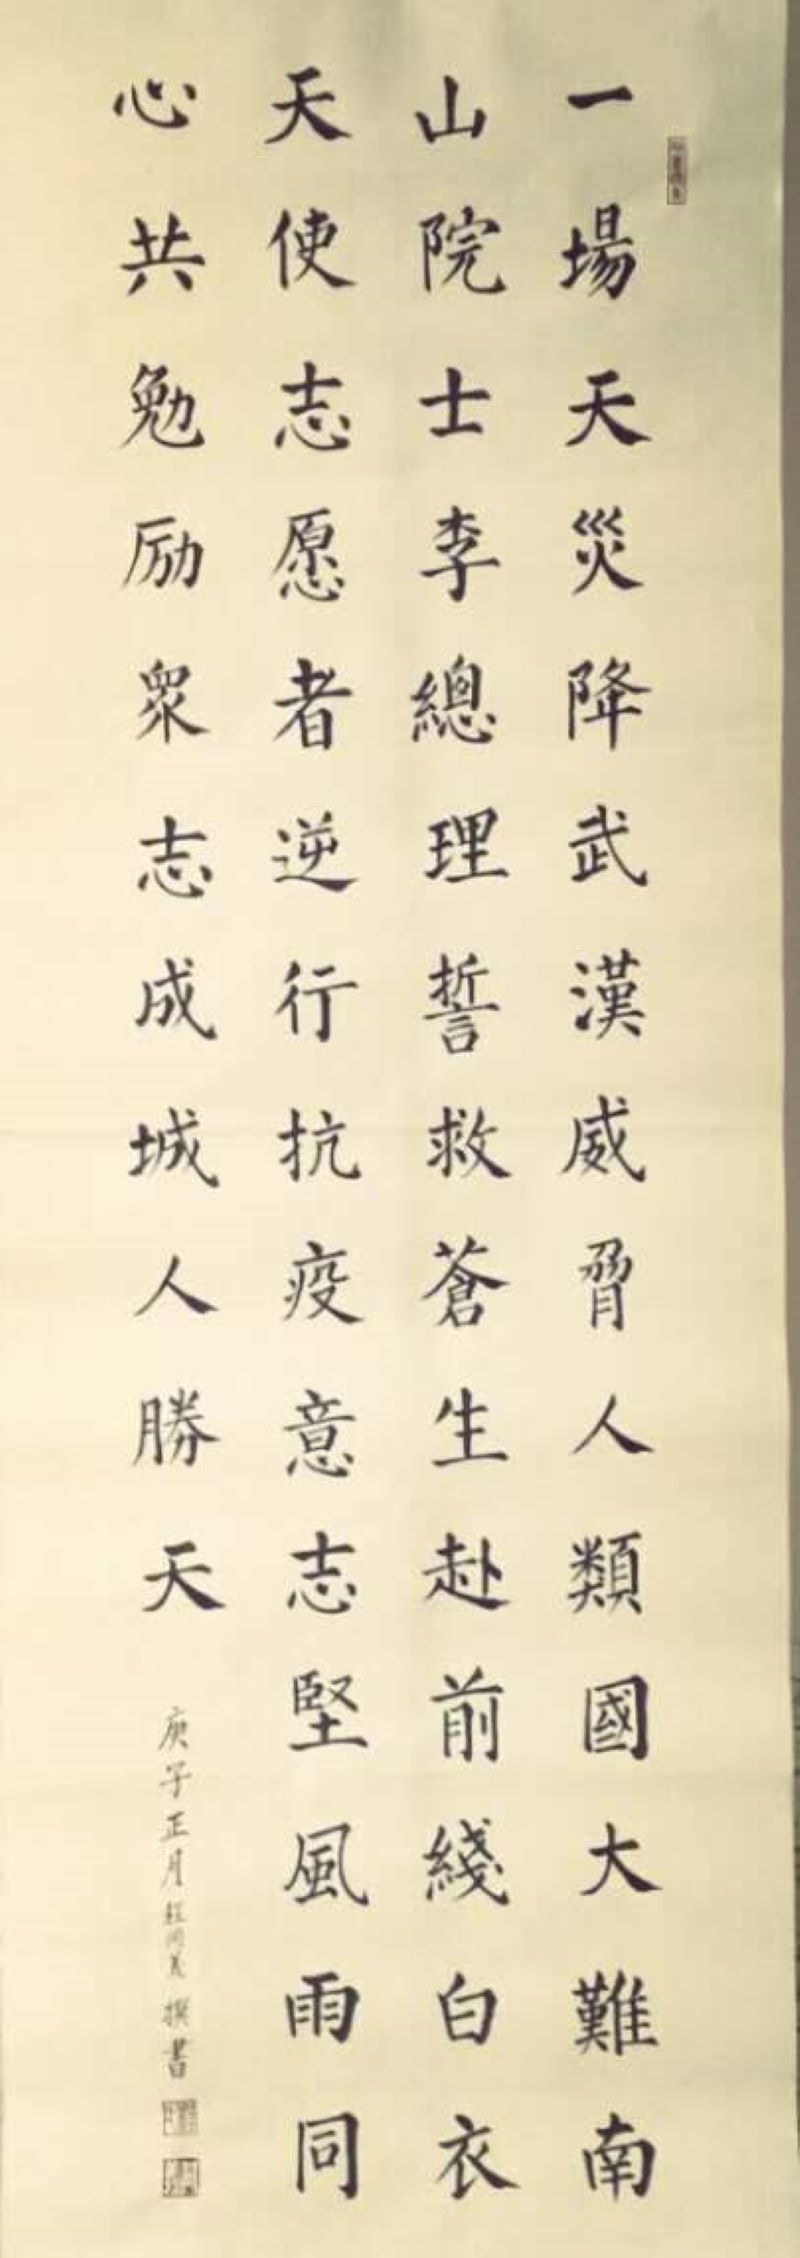 一場天災降武漢威脅人類國大難南
山院士李總理誓救蒼生赴前綫白衣
天使志愿者逆行抗疫意志堅風雨同
心共勉励眾志成城人勝天
庚子正月 撰書